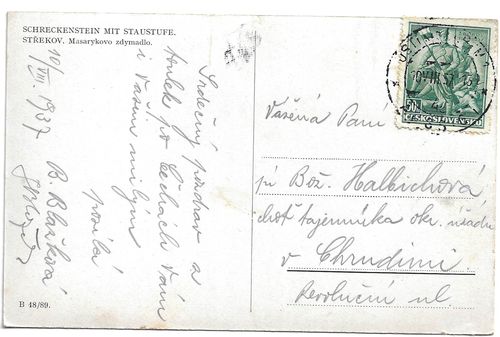 SCHRECKENSTEIN MIT STAUSTUFE.
STŘEKOV. Masarykovo zdymadlo.
10/VIII. 1937
Srdečný pozdrav z
toulek po Čechách Vám
i Vašim milým
posílá
B. Blažková
B 48/89.
50h
ČESKOSLOVENSKO
Vážená Paní
pí Bož. Halbichová
choť tajemníka okr. úřadu
v Chrudimi
Revoluční ul.